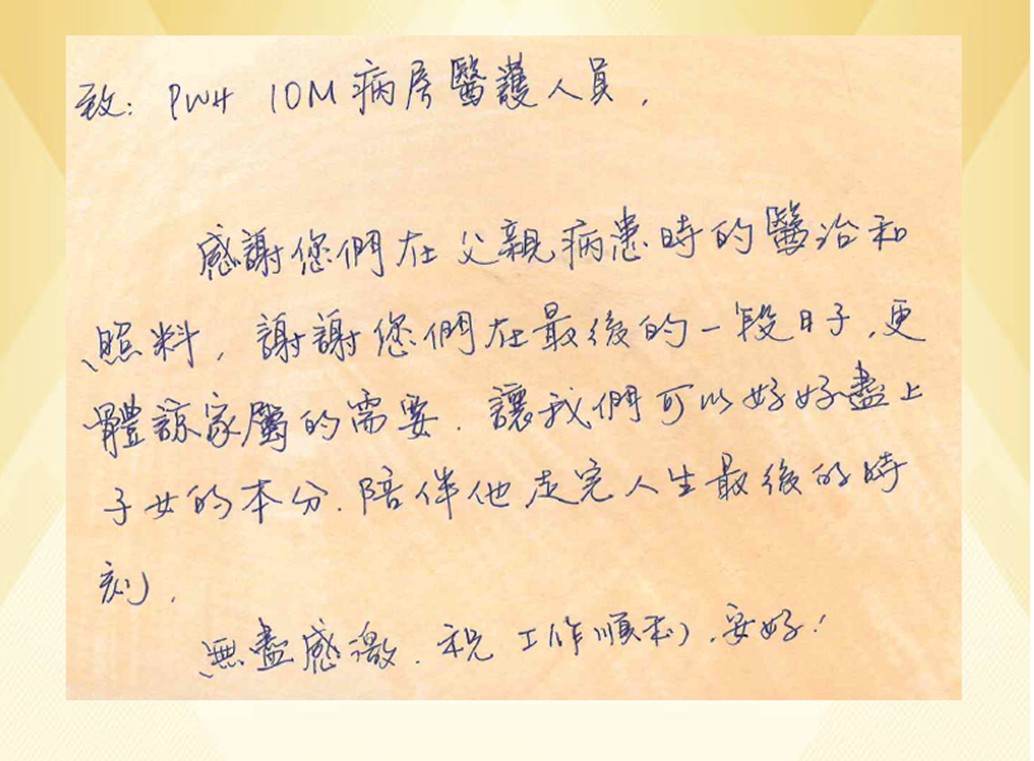 致: PWH 10M 病房醫護人員,
感謝您們在父親病患時的醫治和
照料, 謝謝您們在最後的一段日子,更
體諒家屬的需要. 讓我們可以好好盡上
子女的本分.陪伴他走完人生最後的時
刻.
無盡感激. 祝 工作順利,安好!